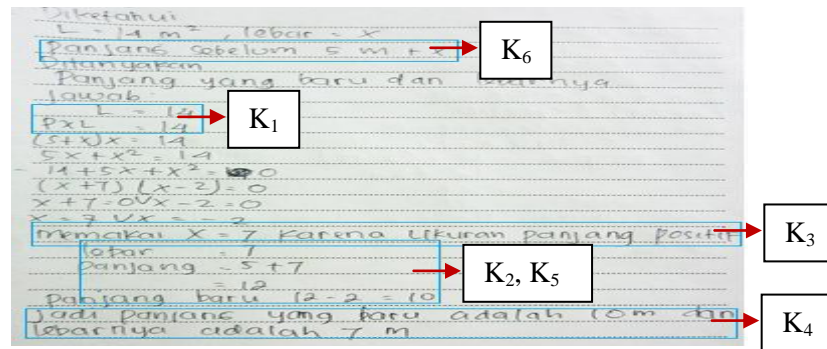 Diketahui
L = 14 m², lebar = x
Panjang sebelum 5 m + x
K₆
Ditanyakan
Panjang yang baru dan
Jawab
L = 14
K₁
P x L = 14
(5+x)x = 14
5x + x² = 14
- 14 + 5x + x² = 0
(x+7) (x-2) = 0
x + 7 = 0 V x - 2 = 0
x = 7 V x = - 2
memakai x = 7 karena ukuran panjang positif
K₃
lebar = 7
panjang = 5 + 7
K₂, K₅
= 12
Panjang baru 12 - 2 = 10
Jadi panjang yang baru adalah 10 m dan
K₄
lebarnya adalah 7 m